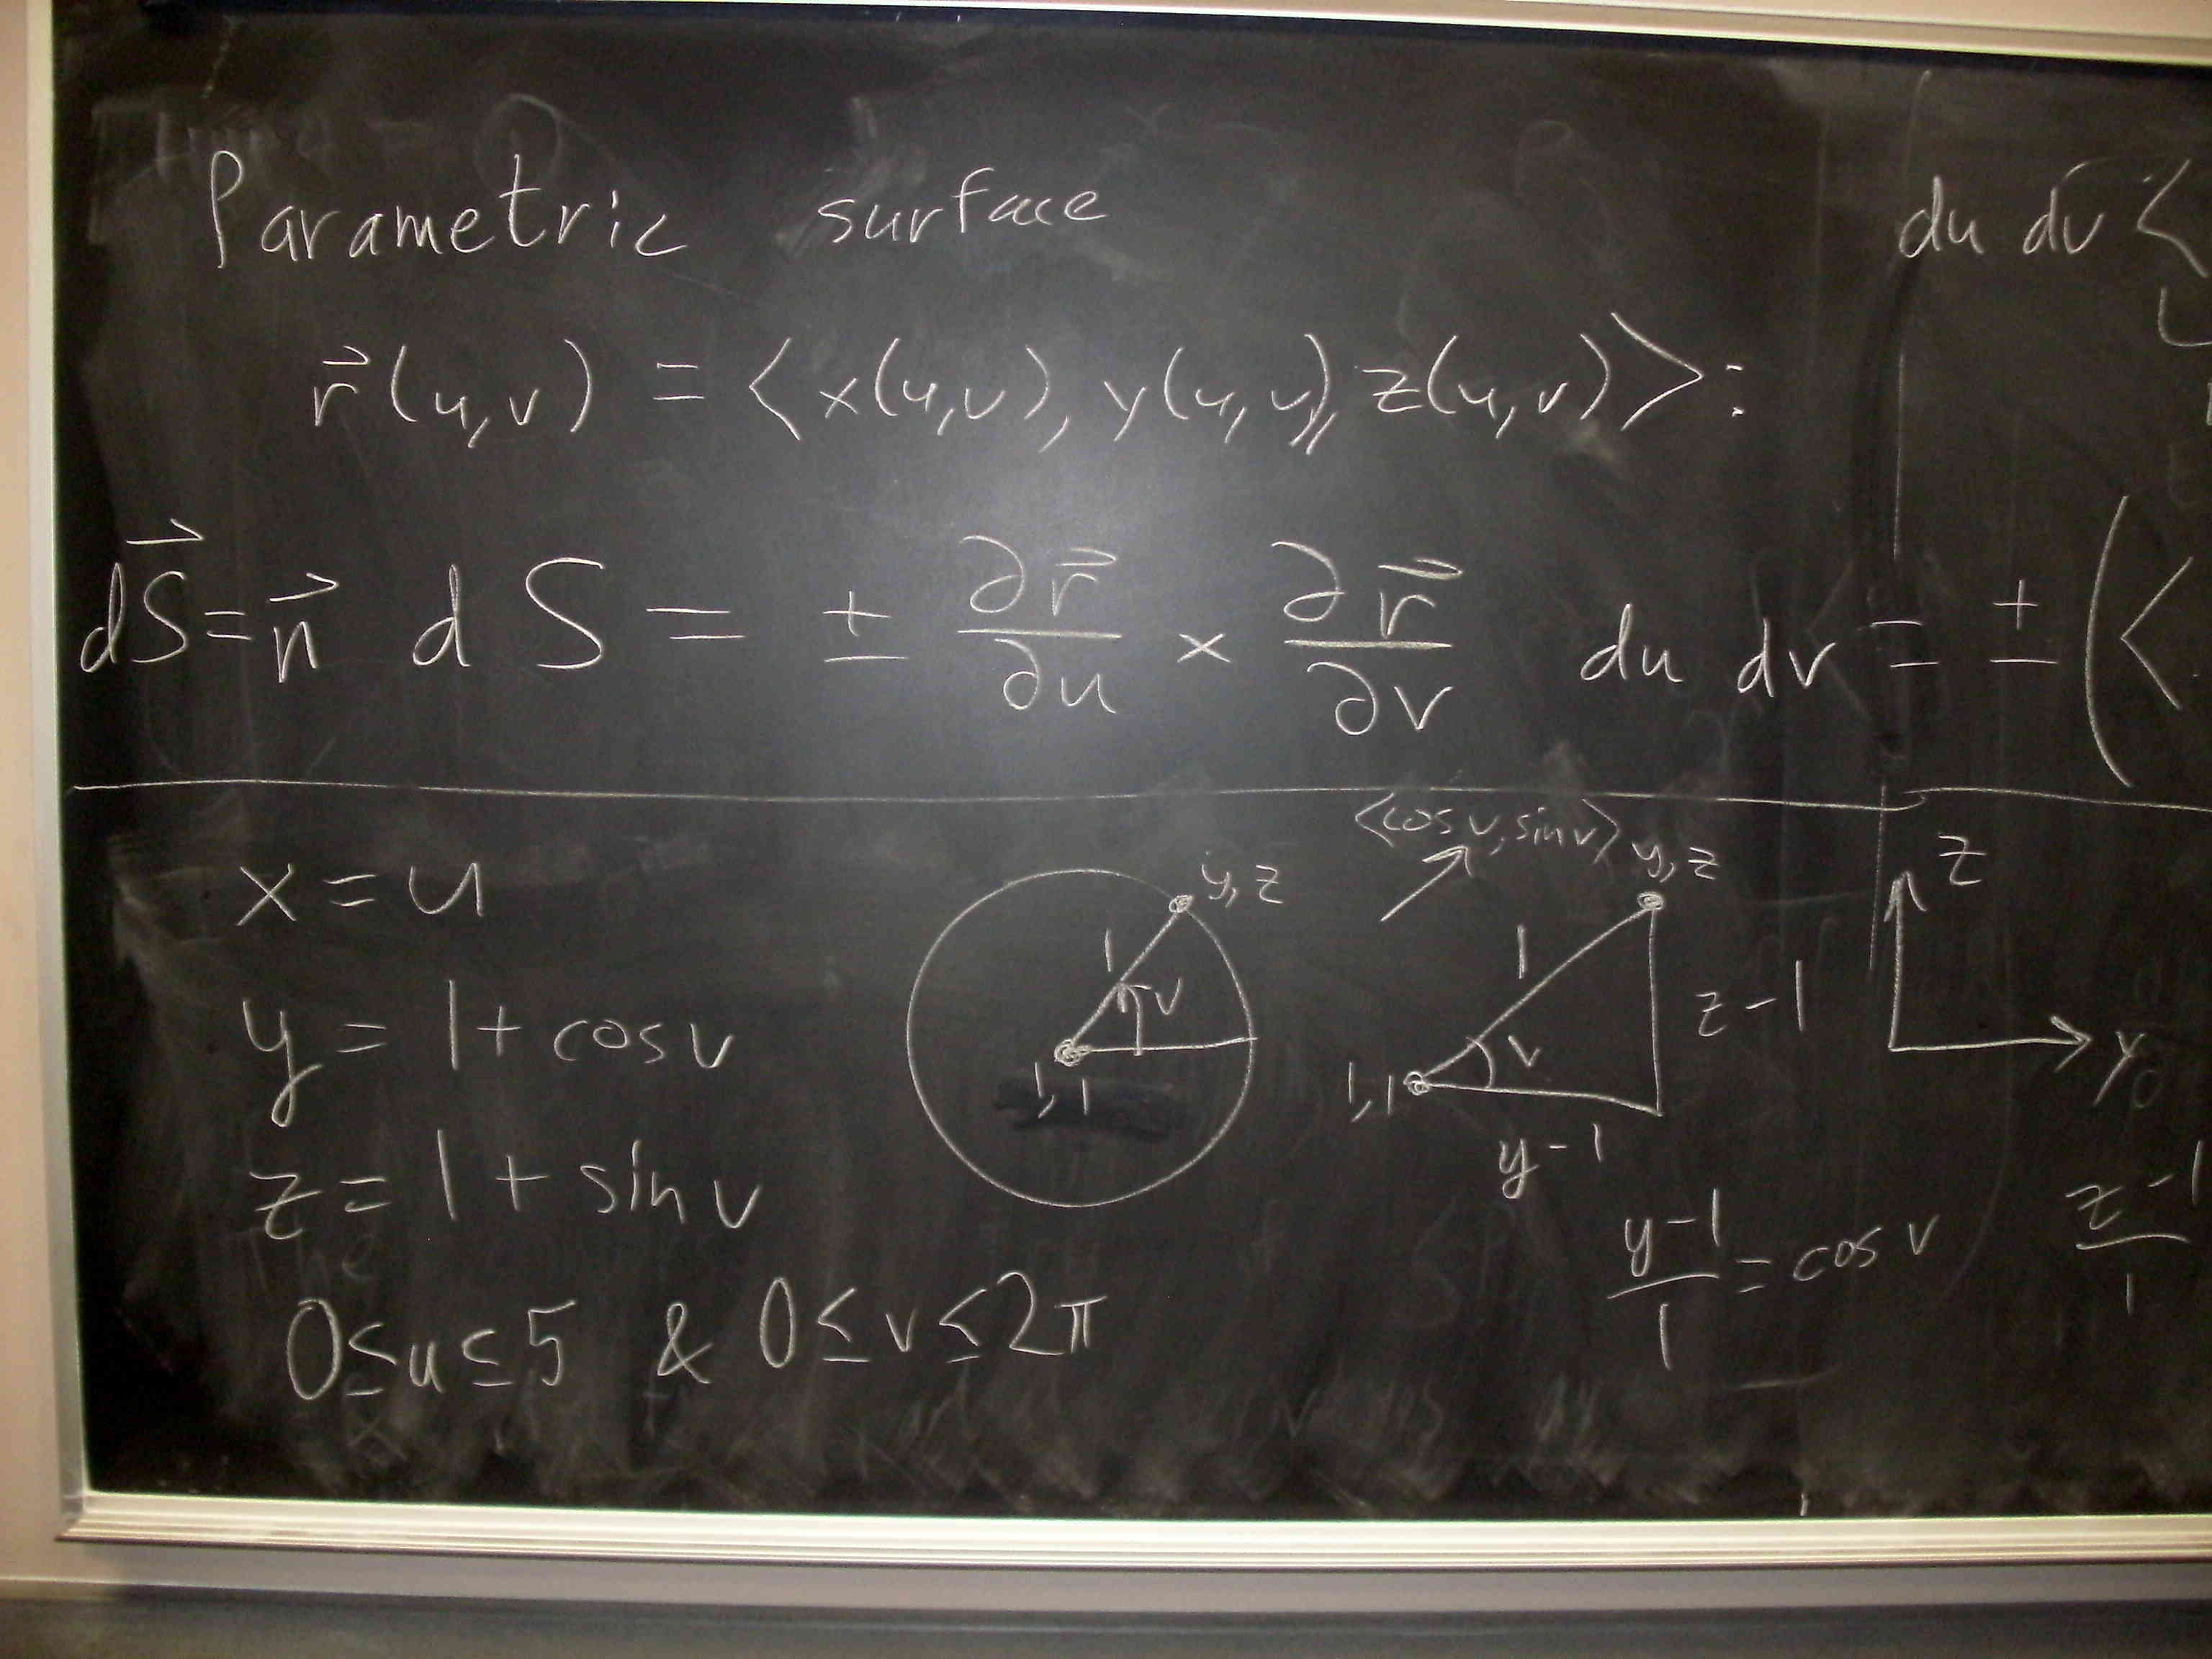 Parametric surface
du dv <
r⃗(u,v) = <x(u,v), y(u,v), z(u,v)>:
dS⃗ = n⃗ dS = ± ∂r⃗/∂u × ∂r⃗/∂v du dv = ± (<
x = u
y = 1 + cos v
z = 1 + sin v
0 ≤ u ≤ 5 & 0 ≤ v ≤ 2π
y, z
1
v
1, 1
<cos v, sin v>
y, z
1
z - 1
v
1, 1
y - 1
z
y
(y-1)/1 = cos v
(z-1)/1